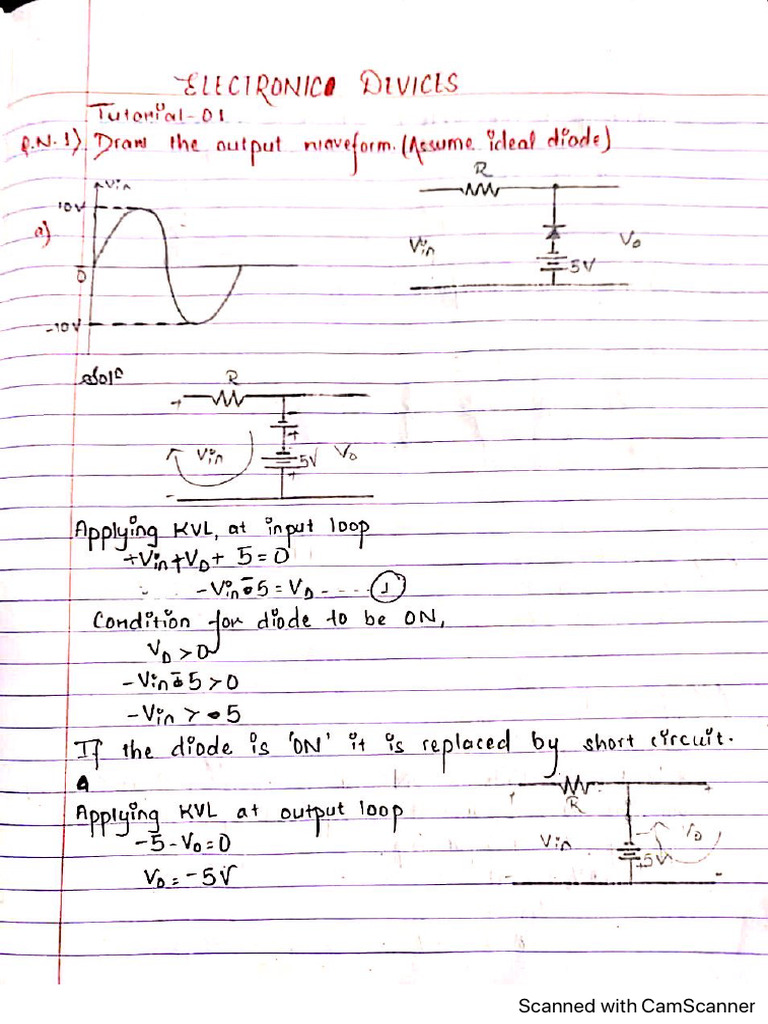 ELECTRONICS DEVICES
Tutorial-01
Q.N.1) Draw the output waveform. (Assume ideal diode)
a)
Vin
10V
0
-10V
R
Vin
Vo
5V
Soln
R
+
Vin
+
5V
Vo
+
-
Applying KVL, at input loop
+Vin+VD+ 5=0
-Vin-5=VD ---- 1
Condition for diode to be ON,
VD>0
-Vin-5>0
-Vin > 5
If the diode is 'ON' it is replaced by short circuit.
Applying KVL at output loop
-5-Vo=0
Vo=-5V
+
R
+
Vin
+5V
Vo
-
-
Scanned with CamScanner